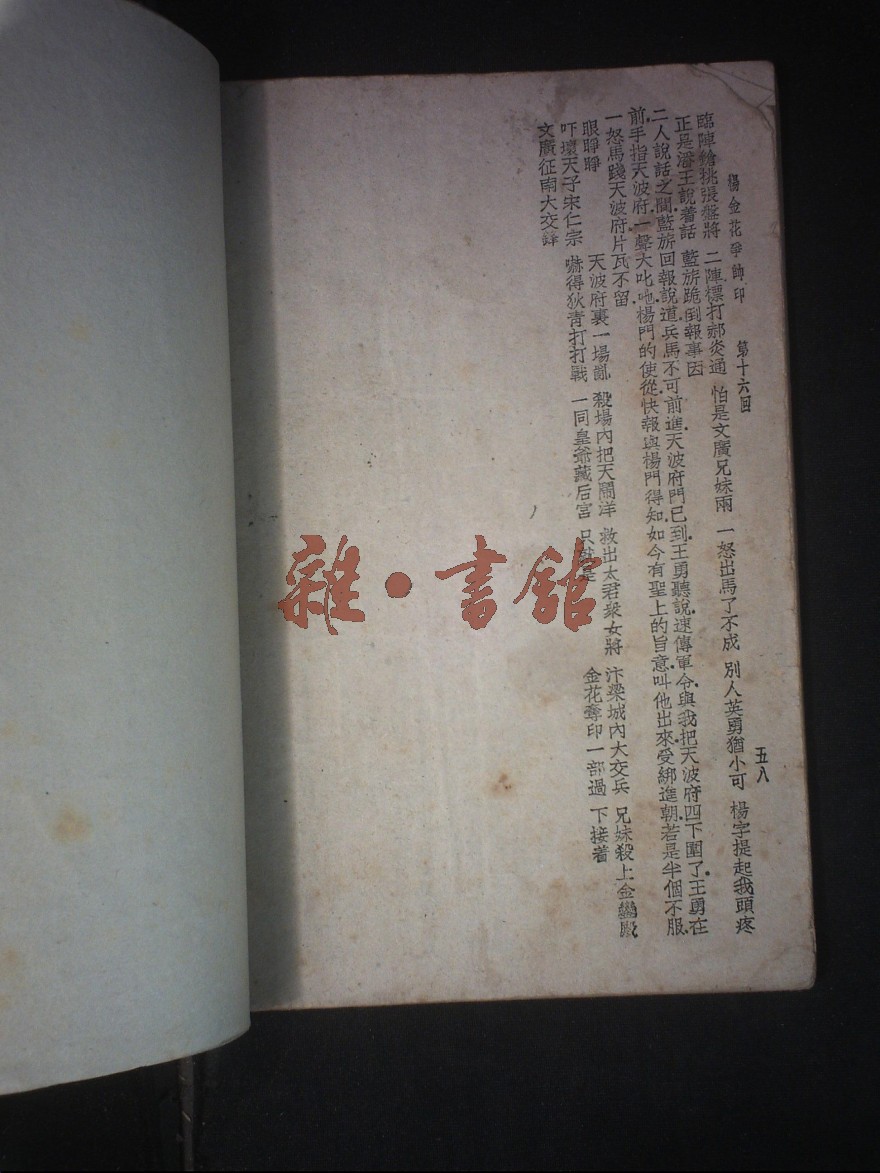 楊金花爭帥印 第十六回 五八
臨陣鎗挑張盤將 二陣標打郝炎通 怕是文廣兄妹兩 一怒出馬了不成 別人英勇猶小可 楊字提起我頭疼
正是潘王說着話 藍旂跪倒報事因
二人說話之間.藍旂回報說道.兵馬不可前進.天波府門已到.王勇聽說.速傳軍令.與我把天波府四下圍了.王勇在
前.手指天波府.一聲大叱.吔楊門的使從.快報與楊門得知.如今有聖上的旨意.叫他出來.受綁進朝.若是半個不服.
一怒馬踐天波府片瓦不留.
眼睜睜 天波府裏一場亂 殺場內把天鬧洋 救出太君衆女將 汴梁城內大交兵 兄妹殺上金鑾殿
吓壞天子宋仁宗 嚇得狄青打打戰 一同皇爺藏后宮 只 是 金花奪印一部過 下接着
文廣征南大交鋒
雜·書舘